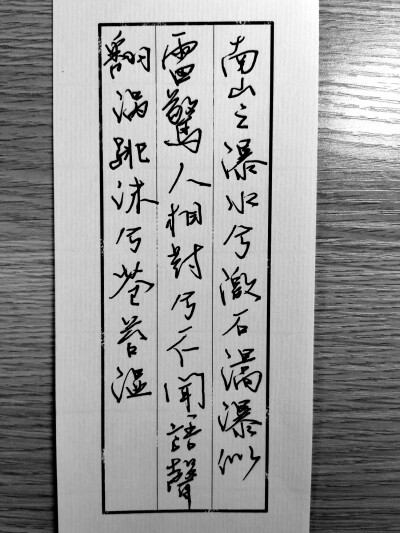 南山之瀑水兮激石滈瀑似
雷驚人相對兮不聞語聲
翻渦跳沫兮蒼苔湿